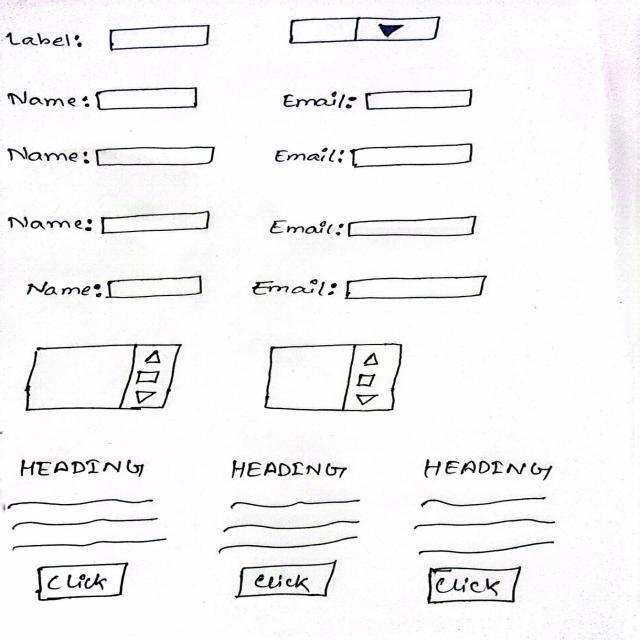 Label:
Name: Email:
Name: Email:
Name: Email:
Name: Email:
HEADING HEADING HEADING
Click Click Click